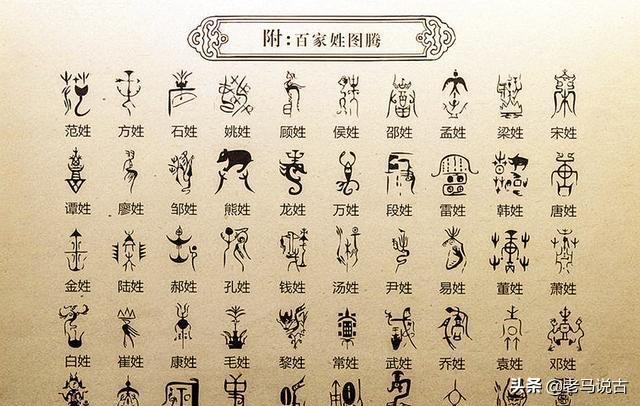 附:百家姓图腾
范姓 方姓 石姓 姚姓 顾姓 侯姓 邵姓 孟姓 梁姓 宋姓
谭姓 廖姓 邹姓 熊姓 龙姓 万姓 段姓 雷姓 韩姓 唐姓
金姓 陆姓 郝姓 孔姓 钱姓 汤姓 尹姓 易姓 董姓 萧姓
白姓 崔姓 康姓 毛姓 黎姓 常姓 武姓 乔姓 袁姓 邓姓
头条 @老马说古